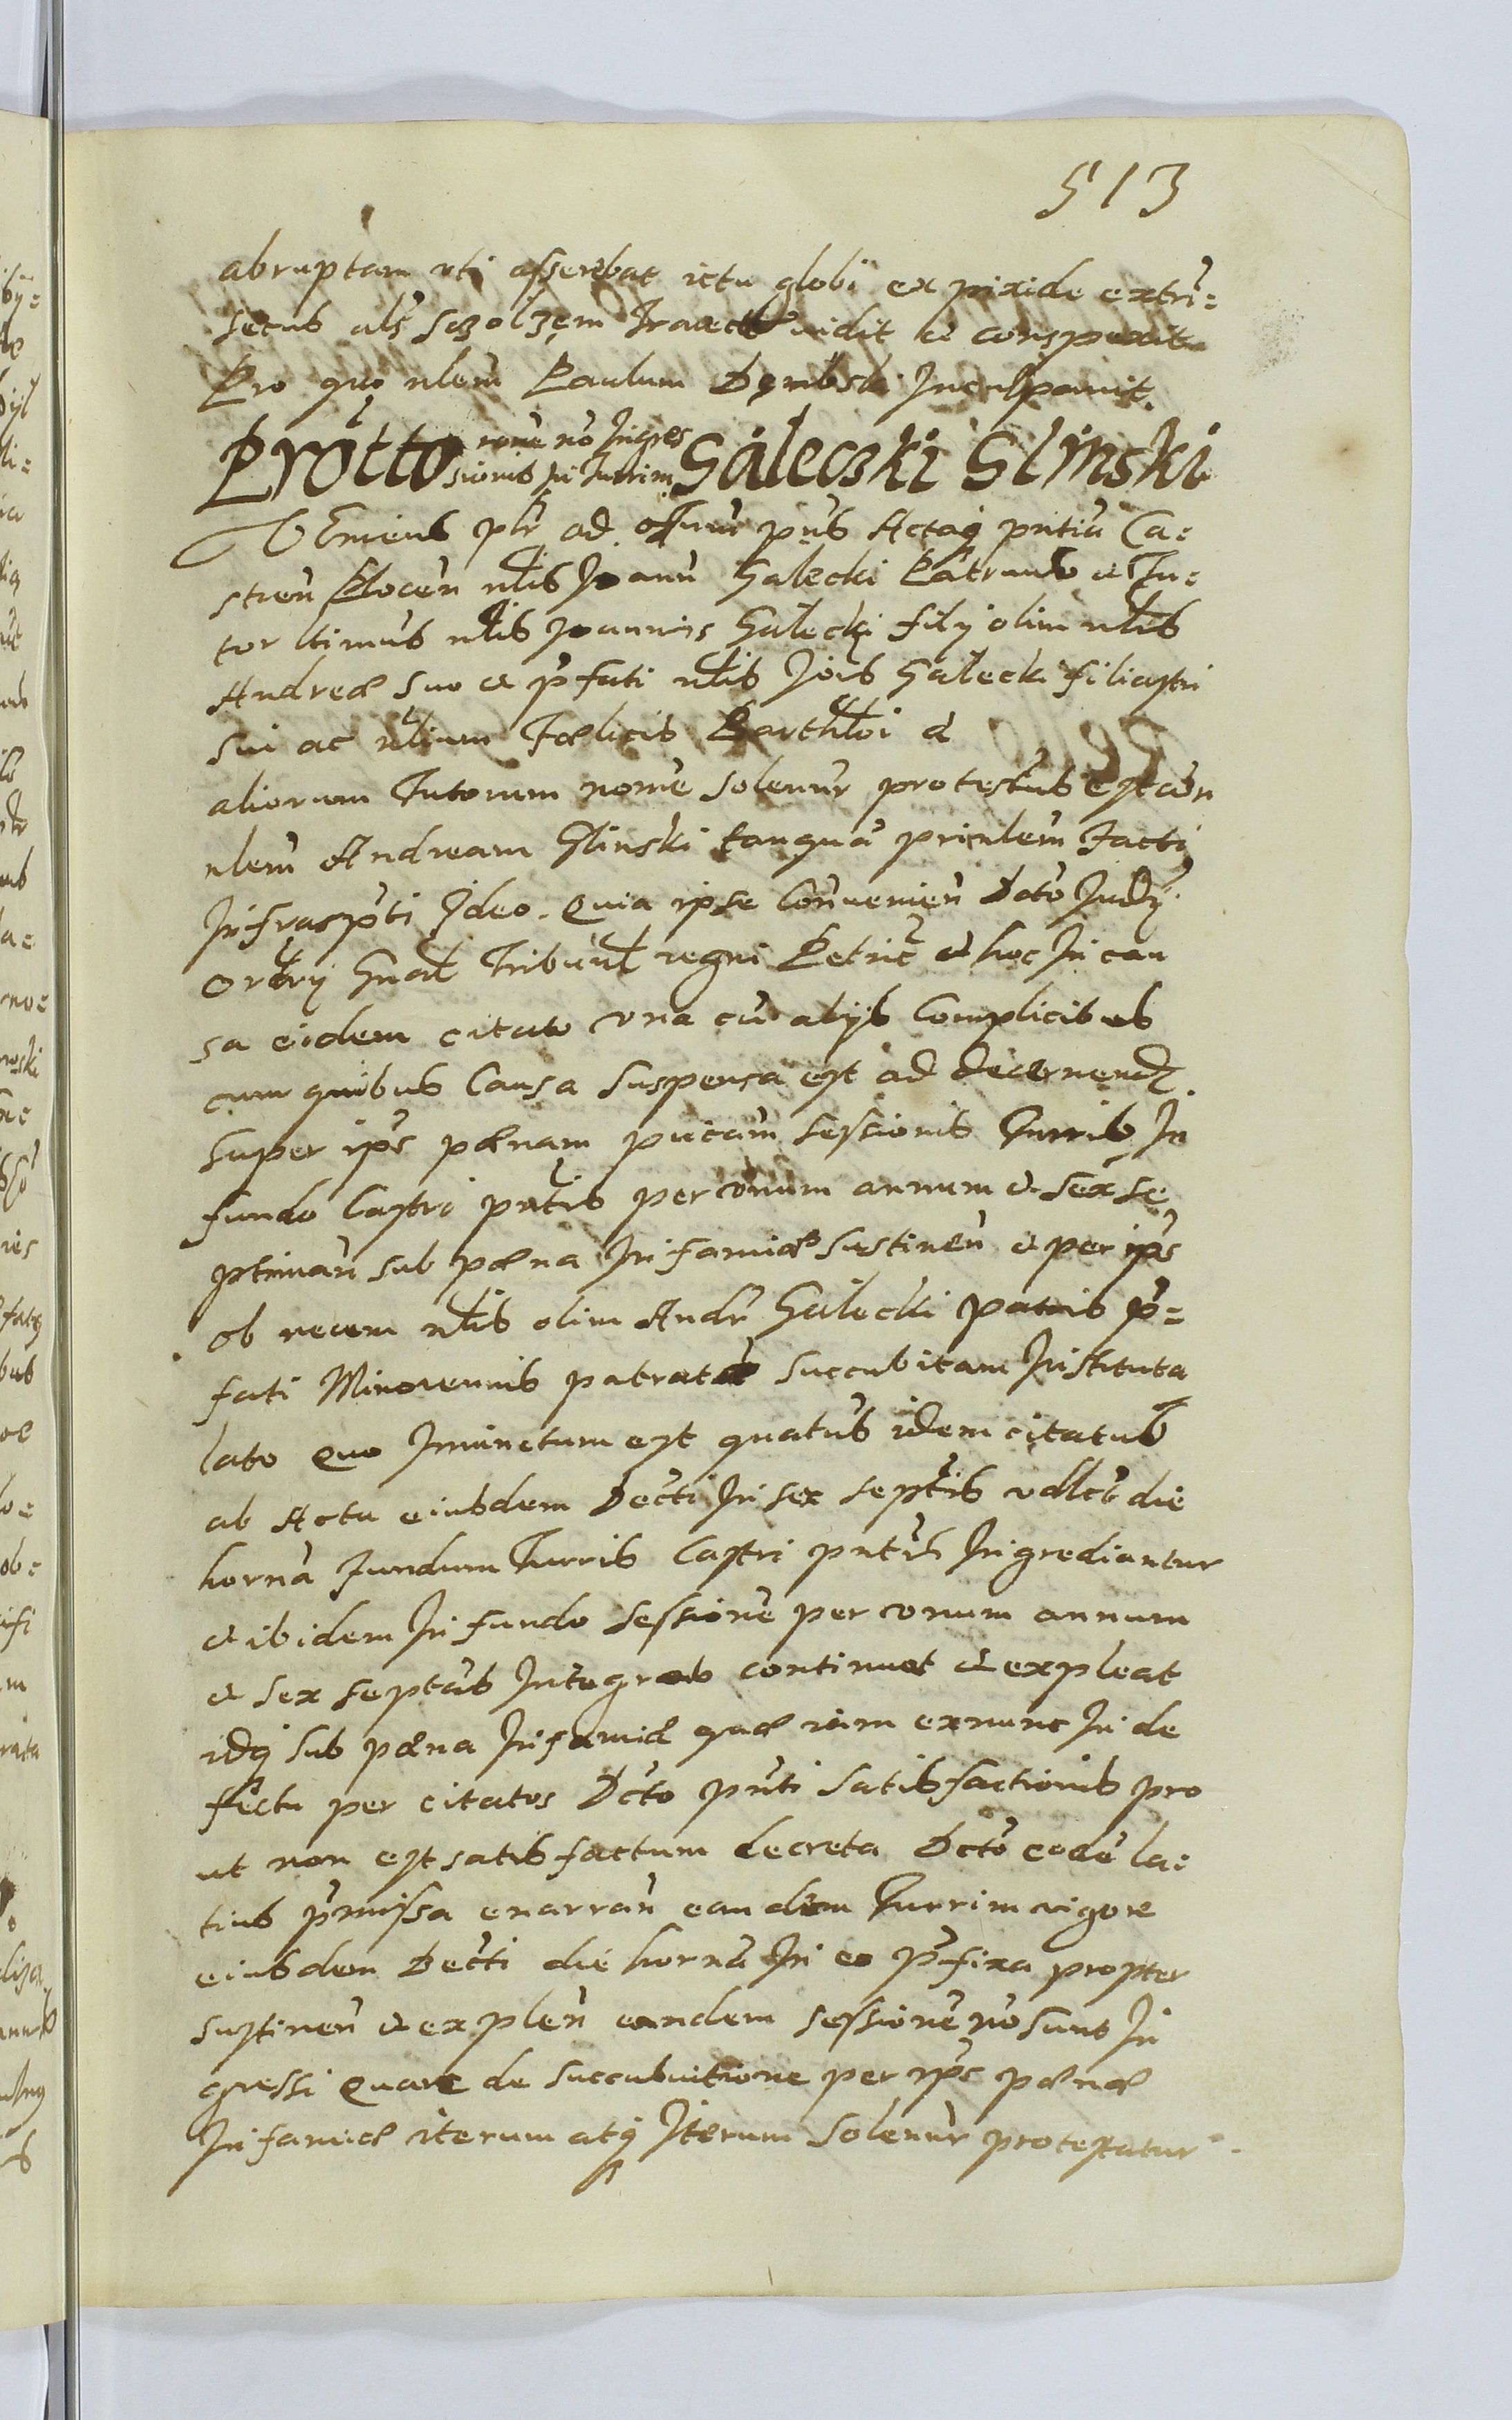 513
abruptam uti asserebat ictu globi ex pixide extrĩ=
secus als szolzem Traiect vidit et conspexit
Pro quo nlem Paulum Dembski Inculpavit.
Protto rone no Ingres
sionis In Turrim Galeczki Glinski
Veniens plr ad offium pns Actaq pntia Ca=
stren Plocen nlis Joann Galecki Patruus et Tu=
tor ltimus nlis Joannis Galecki filij olim nlis
Andreæ suo et pfati nlis Jois Galecki filiastri
sui ac nlium Fœlicis Barthloi et
aliorum Tutorum nome solennr protestus est con
nlem Andream Glinski tanquã prinlem facti
Infraspti Ideo. Quia ipse Convenien Dcto Judij
Ordrij Gnal Tribunl regni Petric et hoc In cau
sa eidem citato una cũ alijs Complicibus
cum quibus Causa suspensa est ad decernend
super ips pœnam pucam sessionis Turris In
fundo Castri pntis per unum annum et sex se
ptiman sub pœna Infamiæ sustinen et per ips
ob necem nlis olim Andr Galecki patris p=
fati Minorennis patratæ succubitam Instituta
lato Quo Iniunctum est quatus idem citatus
ab Actu eiusdem Decti In sex septis udlct die
hornã fundum Turris Castri pntis Ingrediantur
et ibidem In fundo sessione per unum annum
et sex septas Integras continuet et expleat
idq sub pœna Infamiæ quæ iam exnunc In de
fectu per citatos Dcto pnti satisfactionis pro
ut non est satisfactum decreta Dcto eodẽ la=
tius pmissa enarran eandem Turrim vigore
eiusdem Decti die hornã In eo pfixa propter
sustinen et explen eandem sessione no sunt In
gressi Quare de succubuitione per ips pœnæ
Infamiæ iterum atq Iterum solennr protestatur.